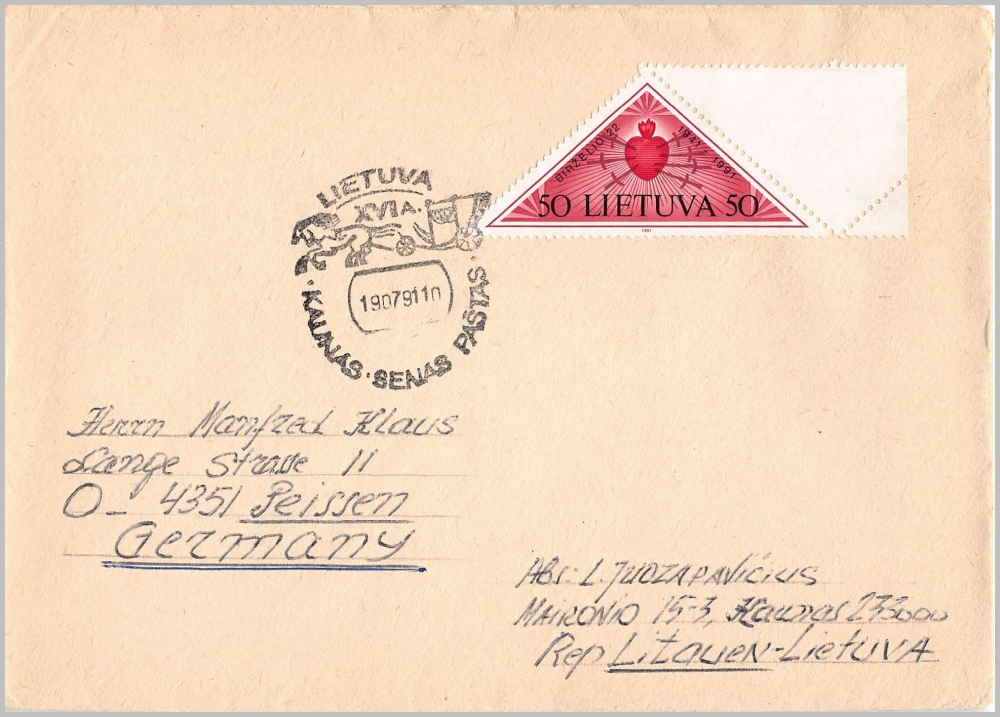 BIRŽELIO 22 1941-1991
50 LIETUVA 50
1991
LIETUVA
XVI A.
19079110
· KAUNAS · SENAS PAŠTAS ·
Herrn Manfred Klaus
Lange Strasse 11
O- 4351 Peissen
Germany
Abs: L. JUOZAPAVIČIUS
MAIRONIO 15-3, Kaunas 233000
Rep Litauen-Lietuva